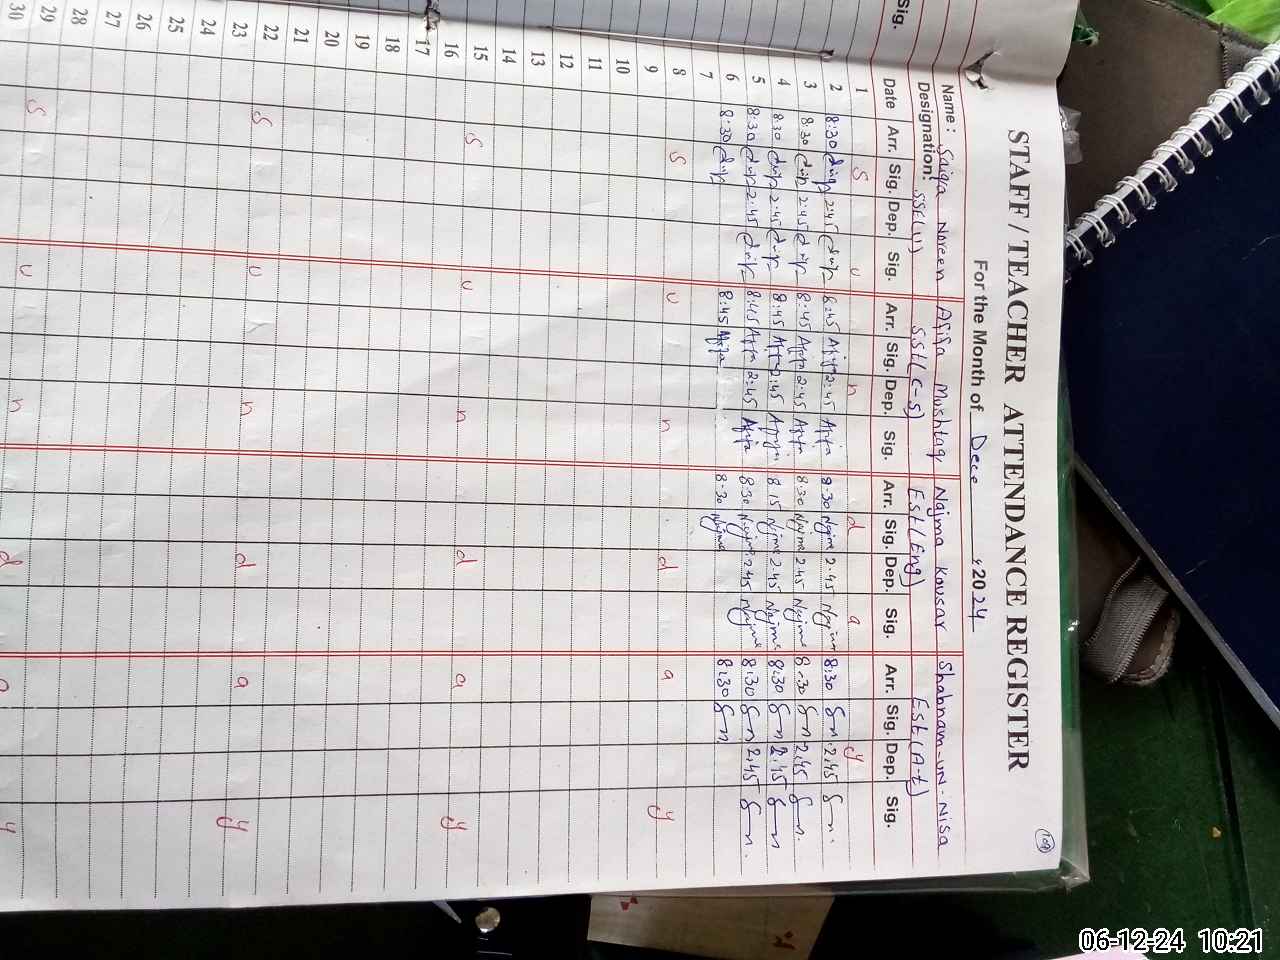 109
STAFF / TEACHER ATTENDANCE REGISTER
For the Month of Dece , 2024
Name : Saiqa Noreen Afifa Mushtaq Najma Kousar Shabnam-un-Nisa
Designation: SSE(U) SST(C-S) Est(Eng) Est(A-t)
Sig. Date Arr. Sig. Dep. Sig. Arr. Sig. Dep. Sig. Arr. Sig. Dep. Sig. Arr. Sig. Dep. Sig.
1 S u n d a y
2 8:30 2:45 8:45 Afifa 2:45 Afifa 8.30 Najma 2.45 Najma 8:30 2.45
3 8:30 2:45 8:45 Afifa 2:45 Afifa 8:30 Najma 2.45 Najma 8:30 2:45
4 8:30 2:45 8:45 2:45 Afifa 8 15 Najma 2.45 Najma 8:30 2:45
5 8:30 2:45 8:45 Afifa 2:45 Afifa 8:30 Najma 2.45 Najma 8:30 2.45
6 8:30 8:45 Afifa 8.30 Najma 8:30
7
8 S u n d a y
9
10
11
12
13
14
15 S u n d a y
16
17
18
19
20
21
22 S u n d a y
23
24
25
26
27
28
29 S u n d a y
30
06-12-24 10:21